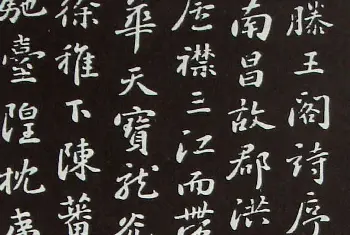 滕王閣詩序
南昌故郡洪
廬襟三江而帶
華天寶龍光
徐稚下陳蕃
馳臺隍枕夷